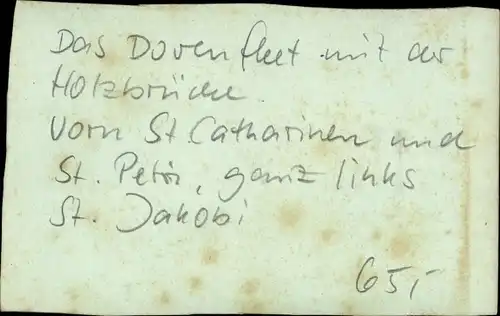 Das Dovenfleet mit der
Holzbrücke.
Vorn St. Catharinen und
St. Petri, ganz links
St. Jakobi
65,-